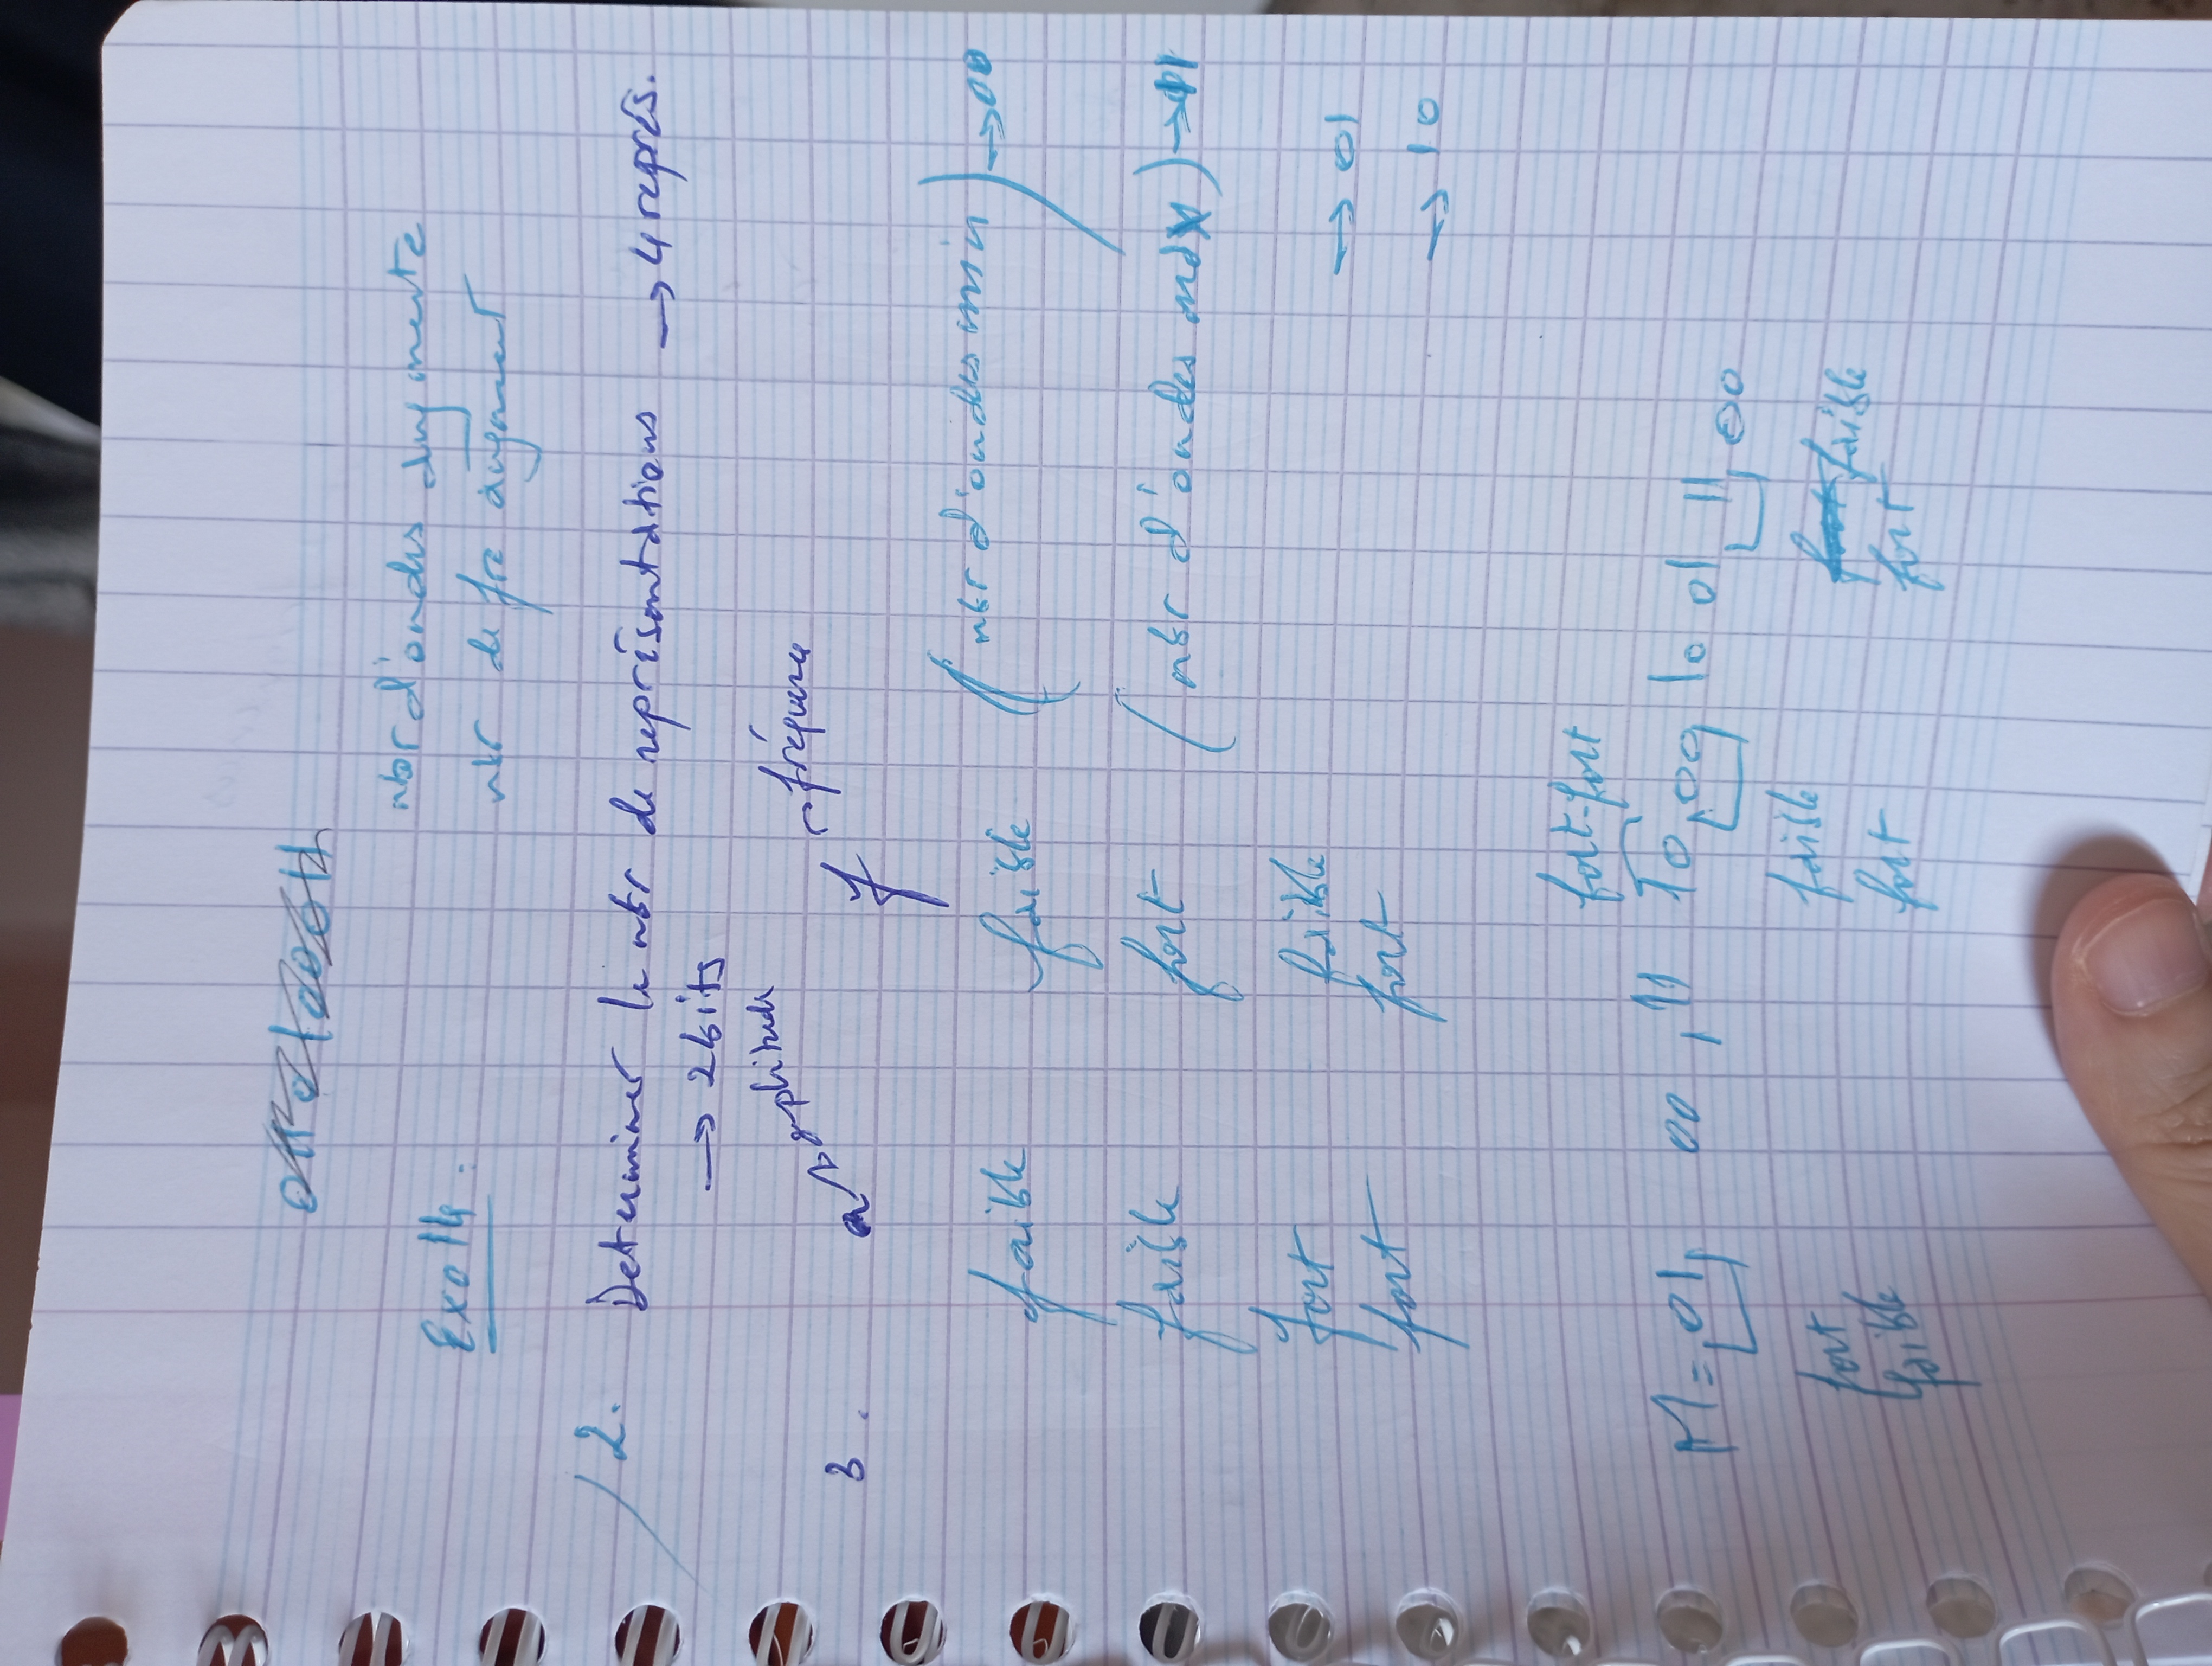 nbr d'ondes augmente
Exo 14 :
nbr de fre augment
2. Determiner le nbr de représentations → 4 représ.
→ 2 bits
amplitude
fréquence
3. a f
faible faible (nbr d'ondes min) → 00
faible fort (nbr d'ondes max) → 11
fort faible → 01
fort fort → 10
fort-fort
M = 01, 00 , 11 10, 00, 10 01, 11, 00
fort faible faible
faible fort fort